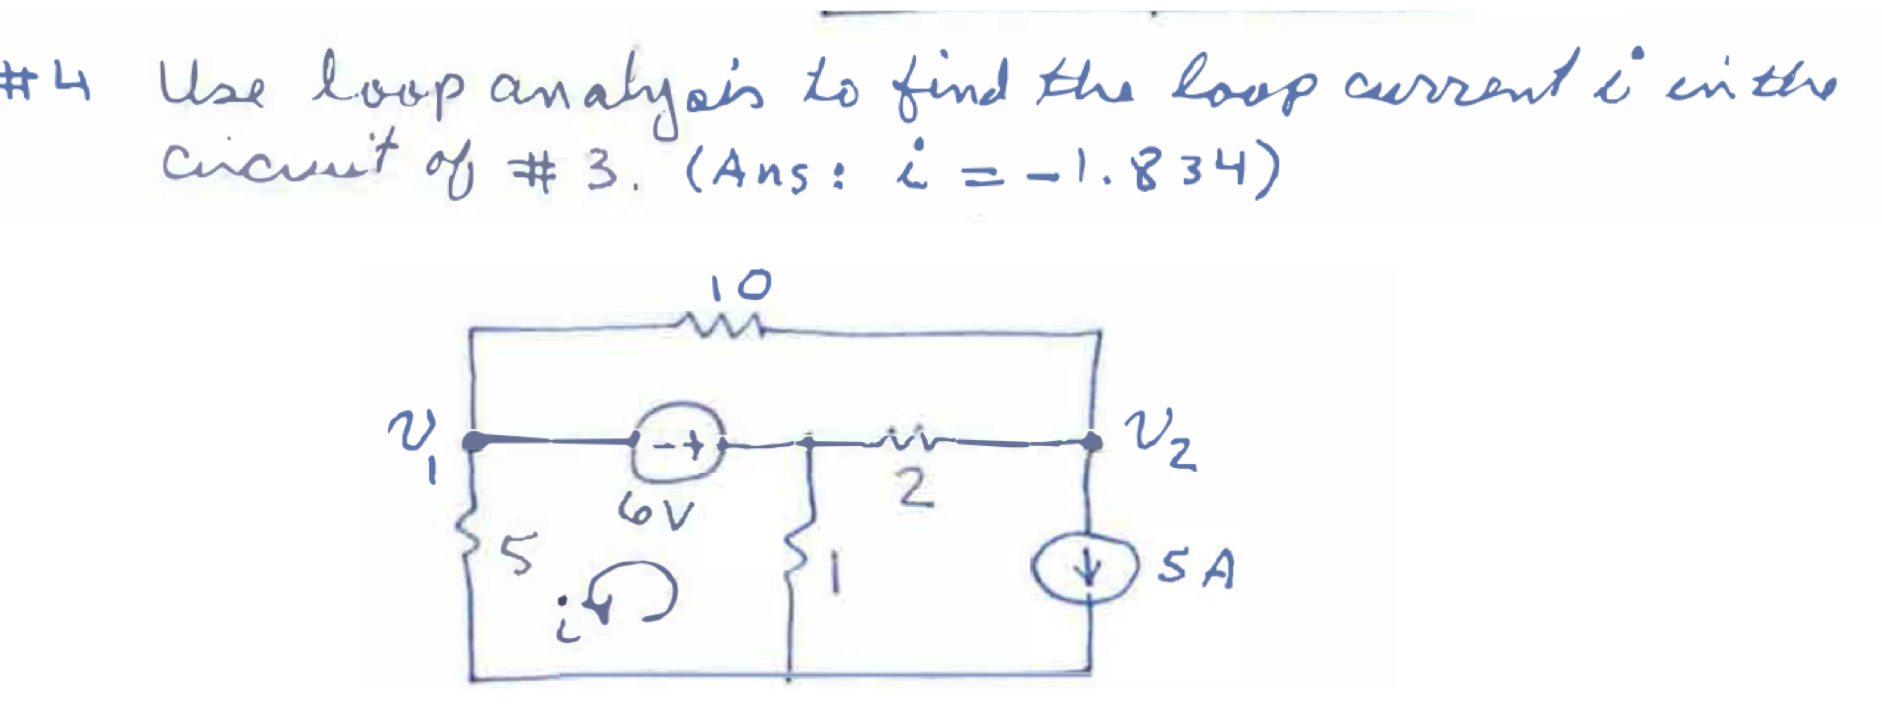 #4 Use loop analysis to find the loop current i in the
circuit of #3. (Ans: i = -1.834)
10
v1
- +
v2
6V
2
5
i
1
5A